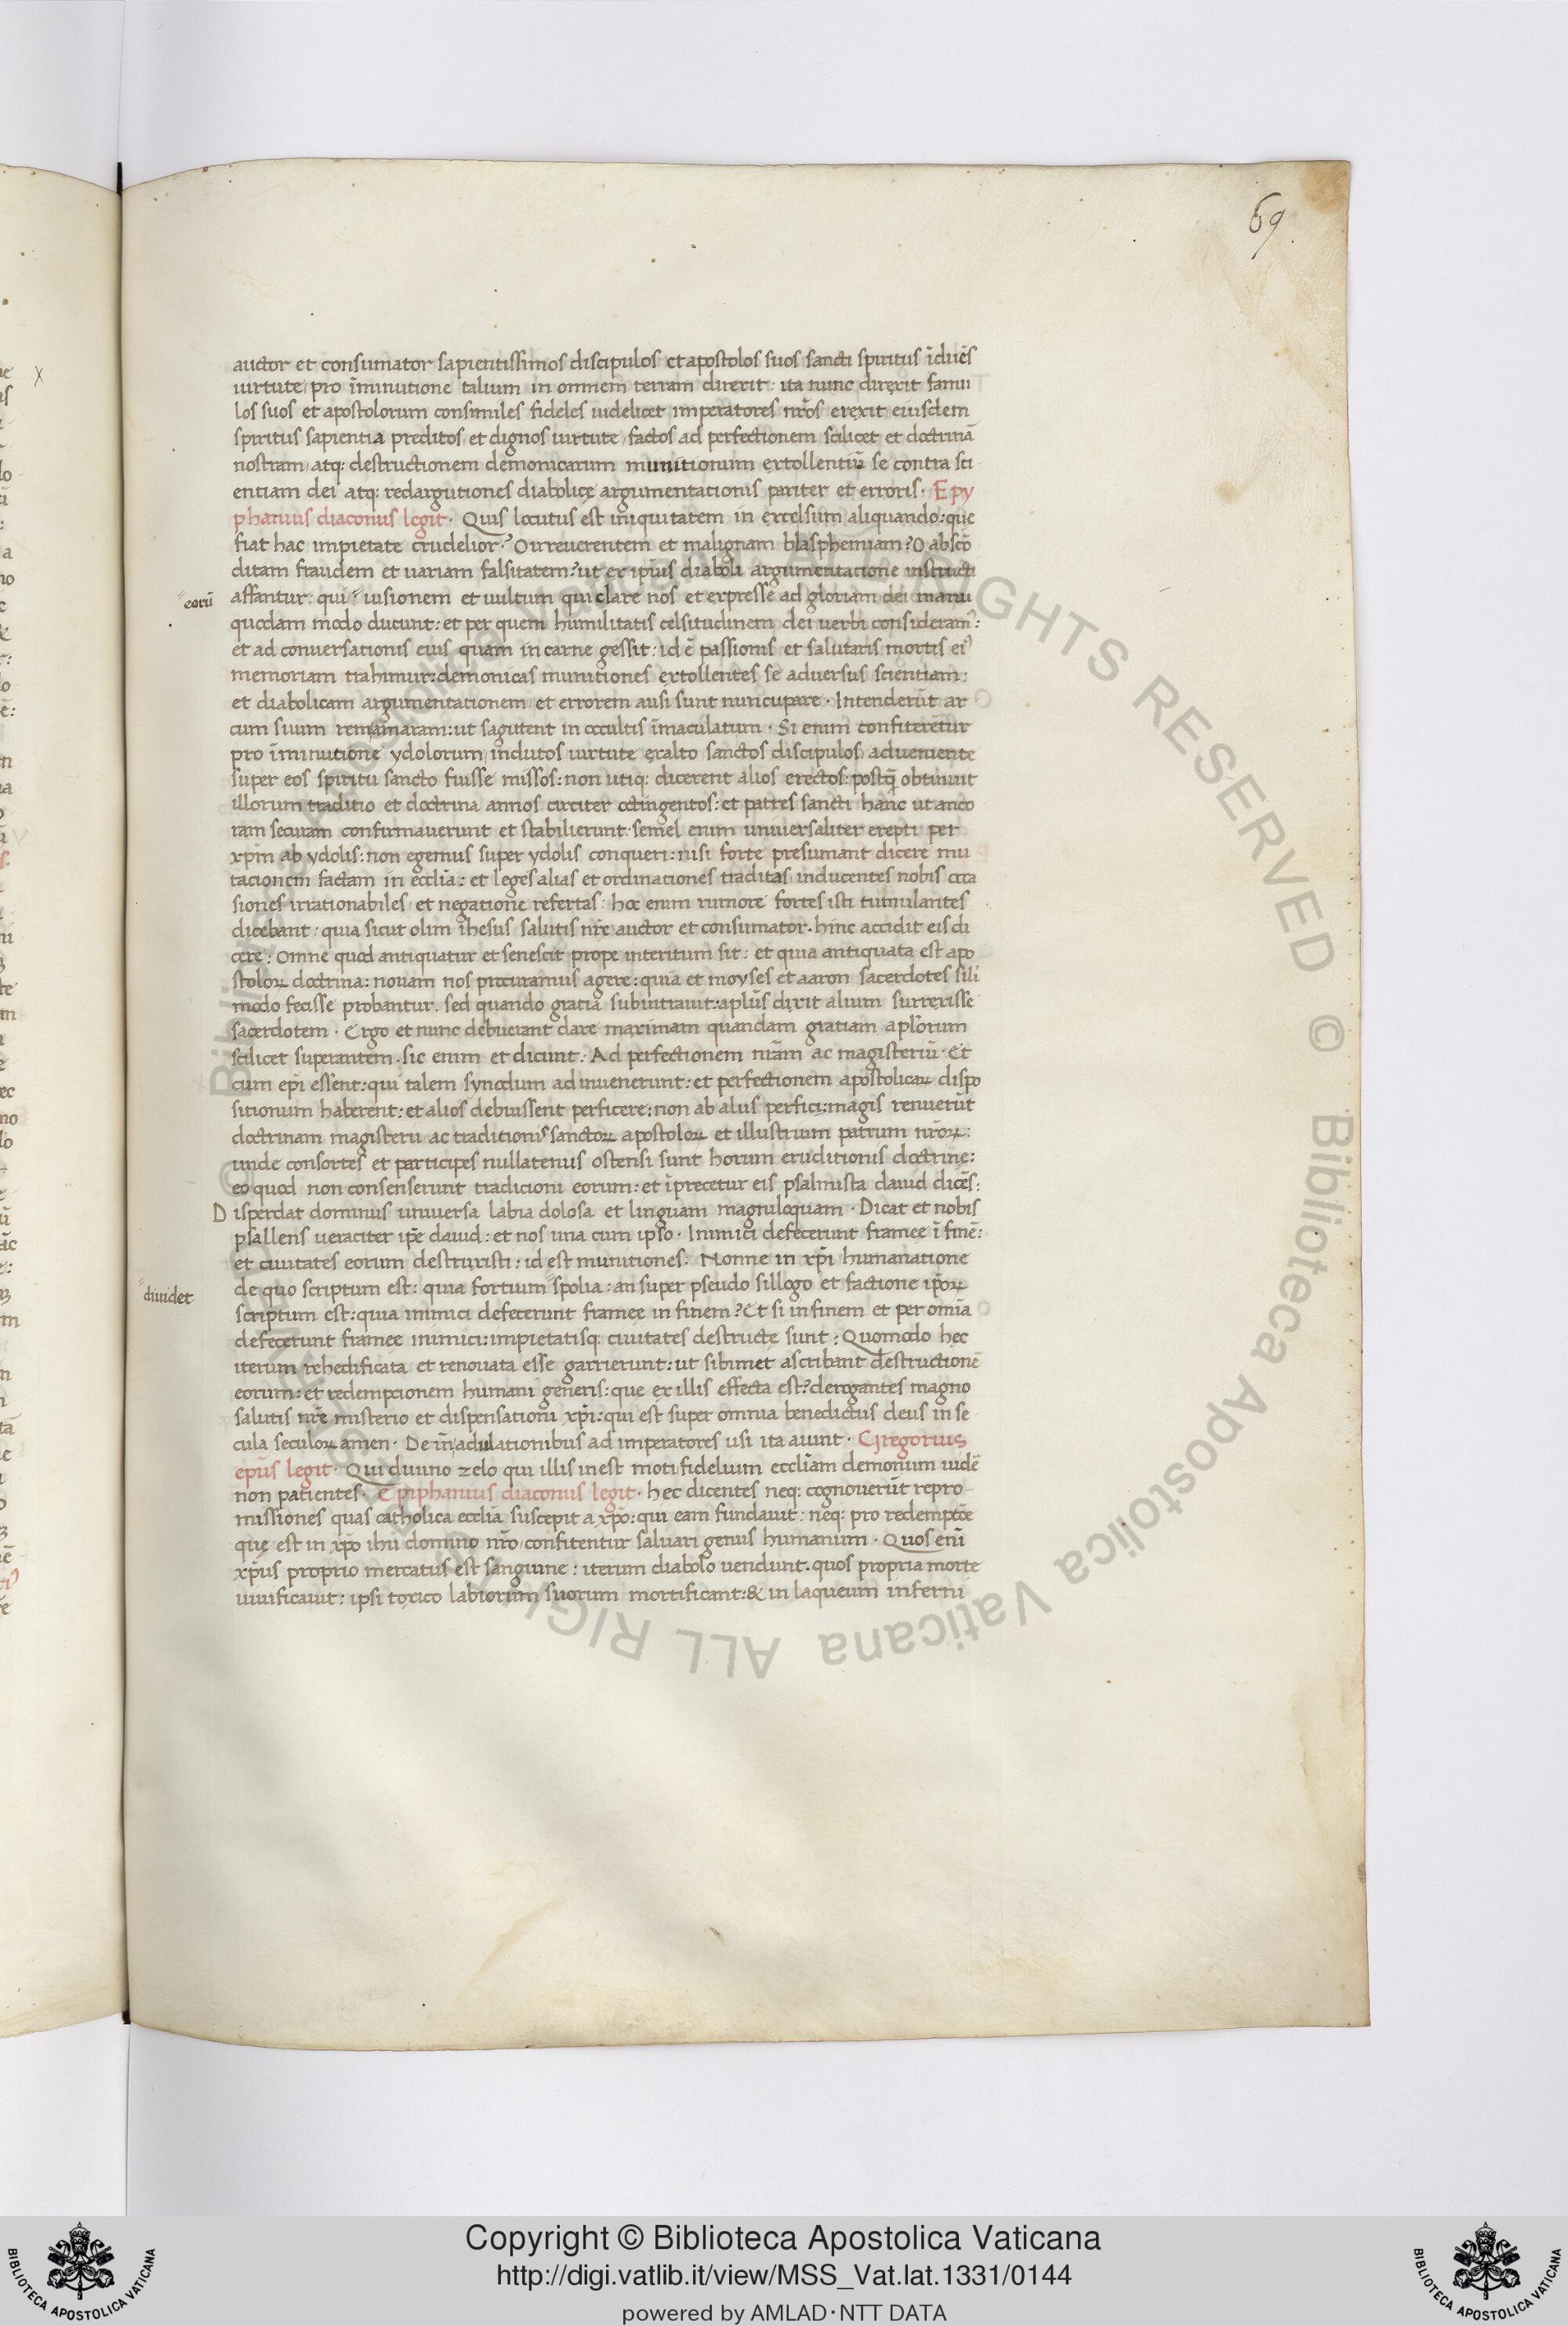 69
auctor et consumator sapientissimos discipulos et apostolos suos sancti spiritus īduēs
uirtute, pro īminutione talium in omnem terram direxit: ita nunc direxit famu
los suos et apostolorum consimiles fideles uidelicet imperatores nr̄os erexit, eiusdem
spiritus sapientia preditos, et dignos uirtute, factos ad perfectionem scilicet et doctrinā
nostram, atq; destructionem demonicarum munitionum extollentiū se contra sci
entiam dei atq; redargutiones diabolicę argumentationis pariter et erroris. Epy
phanius diaconus legit. Quis locutus est iniquitatem in excelsum aliquando: que
fiat hac impietate crudelior? O irreuerentem et malignam blasphemiam? O abscō
ditam fraudem et uariam falsitatem? ut ex ipsius diaboli argumentatione instructi
eorū
affantur: qui uisionem et uultum qui clare nos et expresse ad gloriam dei manu
quodam modo ducunt: et per quem humilitatis celsitudinem dei uerbi consideram᾽:
et ad conuersationis eius quam in carne gessit: id ē passionis et salutaris mortis ei᾽
memoriam trahimur: demonicas munitiones extollentes se aduersus scientiam:
et diabolicam argumentationem, et errorem ausi sunt nuncupare. Intenderūt ar
cum suum rem amaram: ut sagittent in occultis īmaculatum. Si enim confiterētur
pro īminutione ydolorum, indutos uirtute ex alto sanctos discipulos, adueniente
super eos spiritu sancto fuisse missos: non utiq; dicerent alios erectos: postq̄ obtinuit
illorum traditio et doctrina annos circiter octingentos: et patres sancti hanc ut anco
ram securam confirmauerunt et stabilierunt. semel enim uniuersaliter erepti per
xp̄m ab ydolis: non egemus super ydolis conqueri: nisi forte presumant dicere mu
tacionem factam in eccl̄ia: et leges alias et ordinationes traditas inducentes nobis occa
siones irrationabiles, et negatione refertas: hoc enim rumore fortes isti tumulantes
dicebant: quia sicut olim ihesus salutis nr̄e auctor et consumator. hinc accidit eis di
cere: Omne quod antiquatur et senescit prope interitum sit: et quia antiquata est apo
stoloꝝ doctrina: nouam nos procuramus agere: quia et moyses et aaron sacerdotes sili
modo fecisse probantur. sed quando gratia subintrauit: apl̄us dixit alium surrexisse
sacerdotem. Ergo et nunc debuerant dare maximam quandam gratiam apl̄orum
scilicet superantem. sic enim et dicunt: Ad perfectionem nr̄am ac magisteriū. Et
cum ep̄i essent: qui talem synodum adinuenerunt: et perfectionem apostolicaꝝ dispo
sitionum haberent: et alios debuissent perficere: non ab aliis perfici: magis renuerūt
doctrinam magisterii ac traditionis sanctoꝝ apostoloꝝ et illustrium patrum nr̄oꝝ:
unde consortes et participes nullatenus ostensi sunt horum eruditionis doctrine:
eo quod non consenserunt tradicioni eorum: et īprecetur eis psalmista dauid dicēs:
Disperdat dominus uniuersa labia dolosa et linguam magniloquam. Dicat et nobis
psallens ueraciter ip̄e dauid: et nos una cum ipso. Inimici defecerunt framee ī finē:
et ciuitates eorum destruxisti: id est munitiones. Nonne in xp̄i humanatione
diuidet
de quo scriptum est: quia fortium spolia: an super pseudo sillogo et factione ip̄oꝝ
scriptum est: quia inimici defecerunt framee in finem? Et si in finem et per omīa
defecerunt framee inimici: impietatisq; ciuitates destructe sunt: Quomodo hec
iterum rehedificata et renouata esse garrierunt: ut sibimet ascribant destructionē
eorum: et redempcionem humani generis: que ex illis effecta est? derogantes magno
salutis nr̄e misterio et dispensationi xp̄i: qui est super omnia benedictus deus in se
cula seculoꝝ amen. Dein adulationibus ad imperatores usi ita aiunt. Gregorius
ep̄us legit. Qui diuino zelo qui illis inest moti, fidelium eccl̄iam demonum uidē
non patientes. Epiphanius diaconus legit. hec dicentes neq; cognouerūt repro-
missiones quas catholica eccl̄ia suscepit a xp̄o: qui eam fundauit: neq; pro redemptōe
quę est in xp̄o ihū domino nr̄o, confitentur saluari genus humanum. Quos enī
xp̄us proprio mercatus est sanguine: iterum diabolo uendunt. quos propria morte
uiuificauit: ipsi toxico labiorum suorum mortificant: & in laqueum inferni
Copyright © Biblioteca Apostolica Vaticana
http://digi.vatlib.it/view/MSS_Vat.lat.1331/0144
powered by AMLAD·NTT DATA
BIBLIOTECA APOSTOLICA VATICANA
BIBLIOTECA APOSTOLICA VATICANA